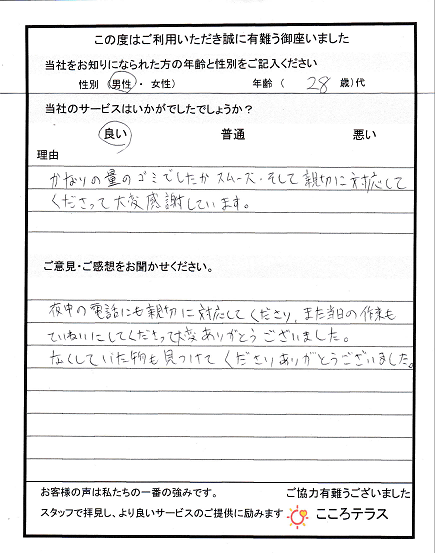 この度はご利用いただき誠に有難う御座いました
当社をお知りになられた方の年齢と性別をご記入ください
性別（男性・女性） 年齢（ 28 歳）代
当社のサービスはいかがでしたでしょうか？
良い 普通 悪い
理由
かなりの量のゴミでしたがスムーズ・そして親切に対応して
くださって大変感謝しています。
ご意見・ご感想をお聞かせください。
夜中の電話にも親切に対応してくださり、また当日の作業も
ていねいにしてくださって大変ありがとうございました。
なくしていた物も見つけてくださりありがとうございました。
お客様の声は私たちの一番の強みです。 ご協力有難うございました
スタッフで拝見し、より良いサービスのご提供に励みます こころテラス